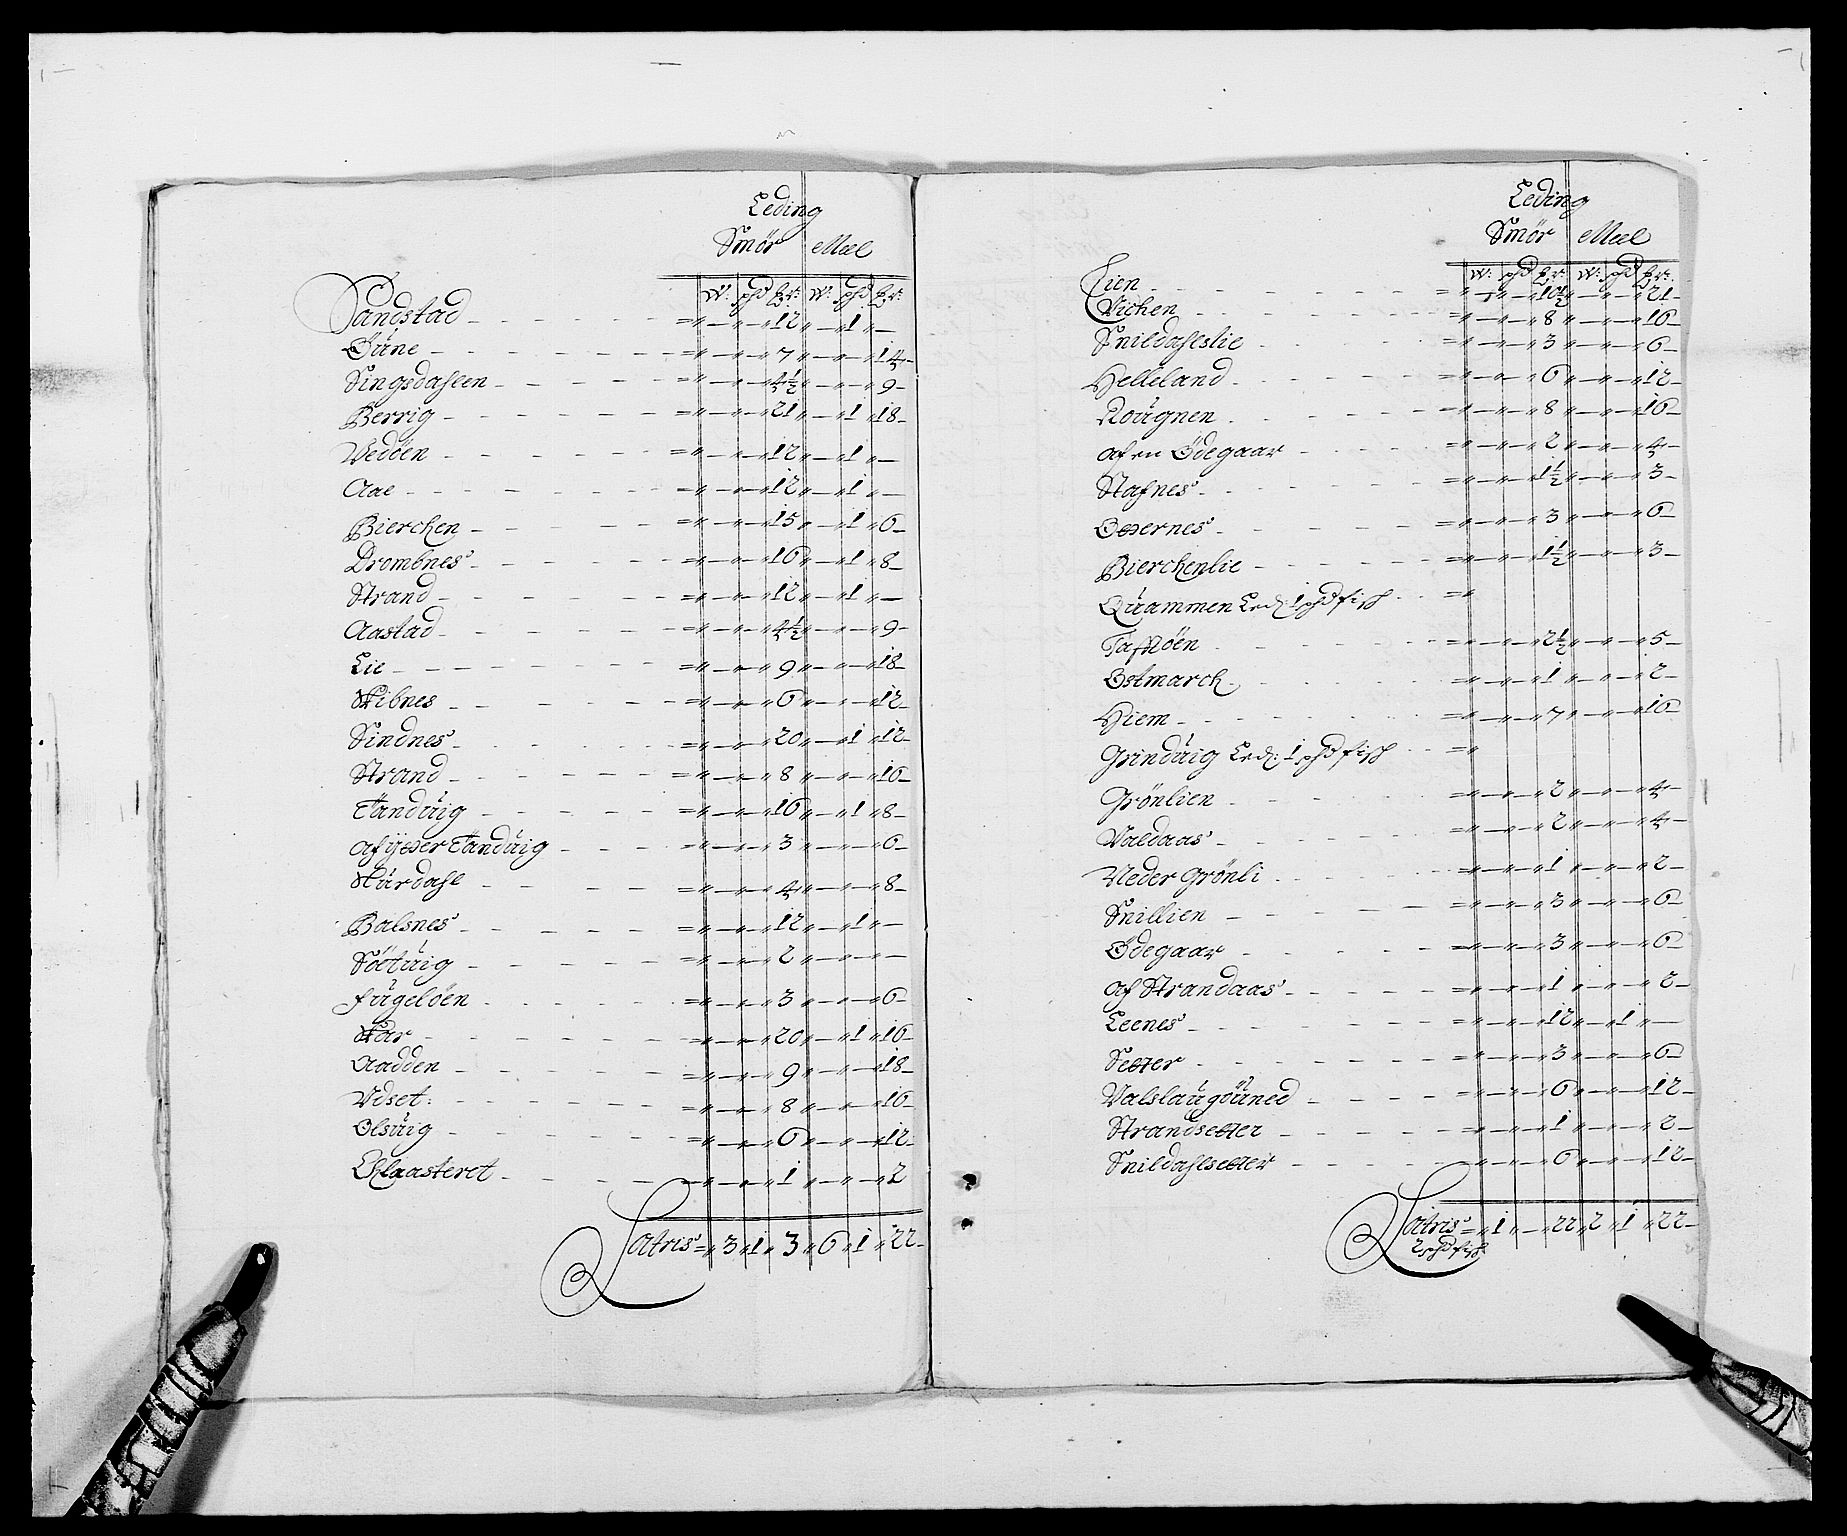 Leding
Smör Meel
W: phd Lr: W: phd Lr:
Sandstad - - - - - = „ — „ — „ 12 „ — „ 1 „ —
Öüne - - - - - = „ — „ — „ 7 „ — „ — „ 14 -
Singsdahlen - - - - = „ — „ — „ 4½ „ — „ — „ 9 -
Berrig - - - - - = „ — „ — „ 21 „ — „ 1 „ 18 -
Vedöen - - - - - = „ — „ — „ 12 „ — „ 1 „ —
Aae - - - - - = „ — „ — „ 12 „ — „ 1 „ —
Bierchen - - - - = „ — „ — „ 15 „ — „ 1 „ 6 -
Drombnes - - - - = „ — „ — „ 16 „ — „ 1 „ 8 -
Strand - - - - - = „ — „ — „ 12 „ — „ 1 „ —
Aastad - - - - - = „ — „ — „ 4½ „ — „ — „ 9 -
Lie - - - - - = „ — „ — „ 9 „ — „ — „ 18 -
Wibnes - - - - - = „ — „ — „ 6 „ — „ — „ 12 -
Sindnes - - - - - = „ — „ — „ 20 „ — „ 1 „ 12 -
Strand - - - - - = „ — „ — „ 8 „ — „ — „ 16 -
Tandüig - - - - = „ — „ — „ 16 „ — „ 1 „ 8 -
af ÿtter Tandüig - - - = „ — „ — „ 3 „ — „ — „ 6 -
Hürdahl - - - - = „ — „ — „ 4 „ — „ — „ 8 -
Balsnes - - - - - = „ — „ — „ 12 „ — „ 1 „ —
Söetüig - - - - - = „ — „ — „ 2 „ — „ — „ —
Fügelöen - - - - = „ — „ — „ 3 „ — „ — „ 6 -
War - - - - - = „ — „ — „ 20 „ — „ 1 „ 16 -
Aadden - - - - - = „ — „ — „ 9 „ — „ — „ 18 -
Vdset: - - - - - = „ — „ — „ 8 „ — „ — „ 16 -
Olsüig - - - - - = „ — „ — „ 6 „ — „ — „ 12 -
Chlaasteret - - - - „ — „ — „ 1 „ — „ — „ 2
Latris = „ 3 „ 1 „ 3 „ 6 „ 1 „ 22 -
Leding
Smör Meel
W: phd Lr: W: phd Lr:
Lien - - - - - = „ — „ — „ 10½ „ — „ — „ 21 -
Vichen - - - - - = „ — „ — „ 8 „ — „ — „ 16 -
Snildahlslie - - - - = „ — „ — „ 3 „ — „ — „ 6 -
Helleland - - - - = „ — „ — „ 6 „ — „ — „ 12 -
Rougnen - - - - = „ — „ — „ 8 „ — „ — „ 16 -
af en Ödegaar - - - = „ — „ — „ 2 „ — „ — „ 4 -
Stafnes - - - - - = „ — „ — „ 1½ „ — „ — „ 3 -
Otternes - - - - - = „ — „ — „ 3 „ — „ — „ 6 -
Bierchenlie - - - - = „ — „ — „ 1½ „ — „ — „ 3 -
Qüammen Led: 1 phd fisch - = „
Tafftöen - - - - = „ — „ — „ 2½ „ — „ — „ 5 -
Ostmarch - - - - = „ — „ — „ 1 „ — „ — „ 2 -
Hiem - - - - - = „ — „ — „ 7 „ — „ — „ 16 -
Grindüig Led: 1 phd fisch - = „
Grönlien - - - - = „ — „ — „ 2 „ — „ — „ 4 -
Valdaas - - - - - = „ — „ — „ 2 „ — „ — „ 4 -
Neder Grönli - - - = „ — „ — „ 1 „ — „ — „ 2 -
Snillien - - - - = „ — „ — „ 3 „ — „ — „ 6 -
Ödegaar - - - - = „ — „ — „ 3 „ — „ — „ 6 -
af Strandaas - - - = „ — „ — „ 1 „ — „ — „ 2 -
Leenes - - - - - = „ — „ — „ 12 „ — „ 1 „ —
Setter - - - - - = „ — „ — „ 3 „ — „ — „ 6 -
Valslaugöüned - - - = „ — „ — „ 6 „ — „ — „ 12 -
Strandsetter - - - - = „ — „ — „ 1 „ — „ — „ 2 -
Snildahlsetter - - - - „ — „ — „ 6 „ — „ — „ 12 -
Latris = „ 1 „ — „ 22 „ 2 „ 1 „ 22 -
2 phd fisch